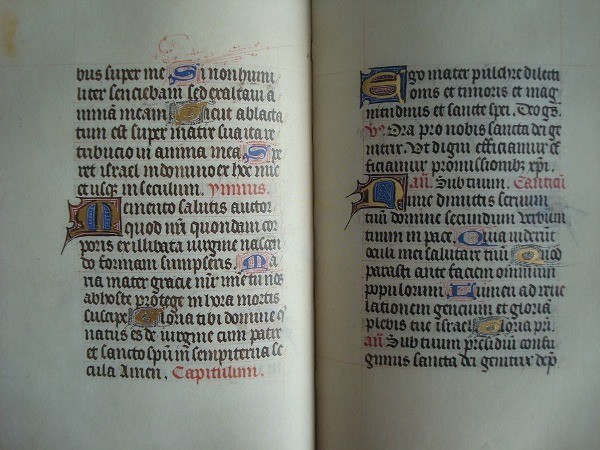 bus super me Si non humi
liter senciebam sed exaltaui a
nimā meam Sicut ablacta
tum est super matre sua ita re
tribucio in anima mea Spe
ret israel in domino ex hoc nūc
et usq; in seculum. ymnus.
Memento salutis auctor
quod nrī quondam cor
poris ex illibata uirgine nascen
do formam sumpseris. Ma
ria mater gracie nūc me tu nos
ab hoste protege in hora mortis
suscipe Gloria tibi domine q̄
natus es de uirgine cum patre
et sancto spū in sempiterna se
cula Amen. Capitulum.
Ego mater pulchre dilecti
onis et timoris et mag
nitudinis et sancte spei. Deo gs.
V. Ora pro nobis sancta dei ge
nitrix. Vt digni efficiamur ef
ficiamur promissionibz xpī.
añ. Sub tuum. Canticū
Nunc dimittis seruum
tuū domine secundum verbum
tuum in pace. Quia uiderūt
oculi mei salutare tuū Quod
parasti ante faciem omnium
populorum. Lumen ad reue
lationem gencium et gloriā
plebis tue israel Gloria pri.
añ Sub tuum presidiū confu
gimus sancta dei genitrix dep̄